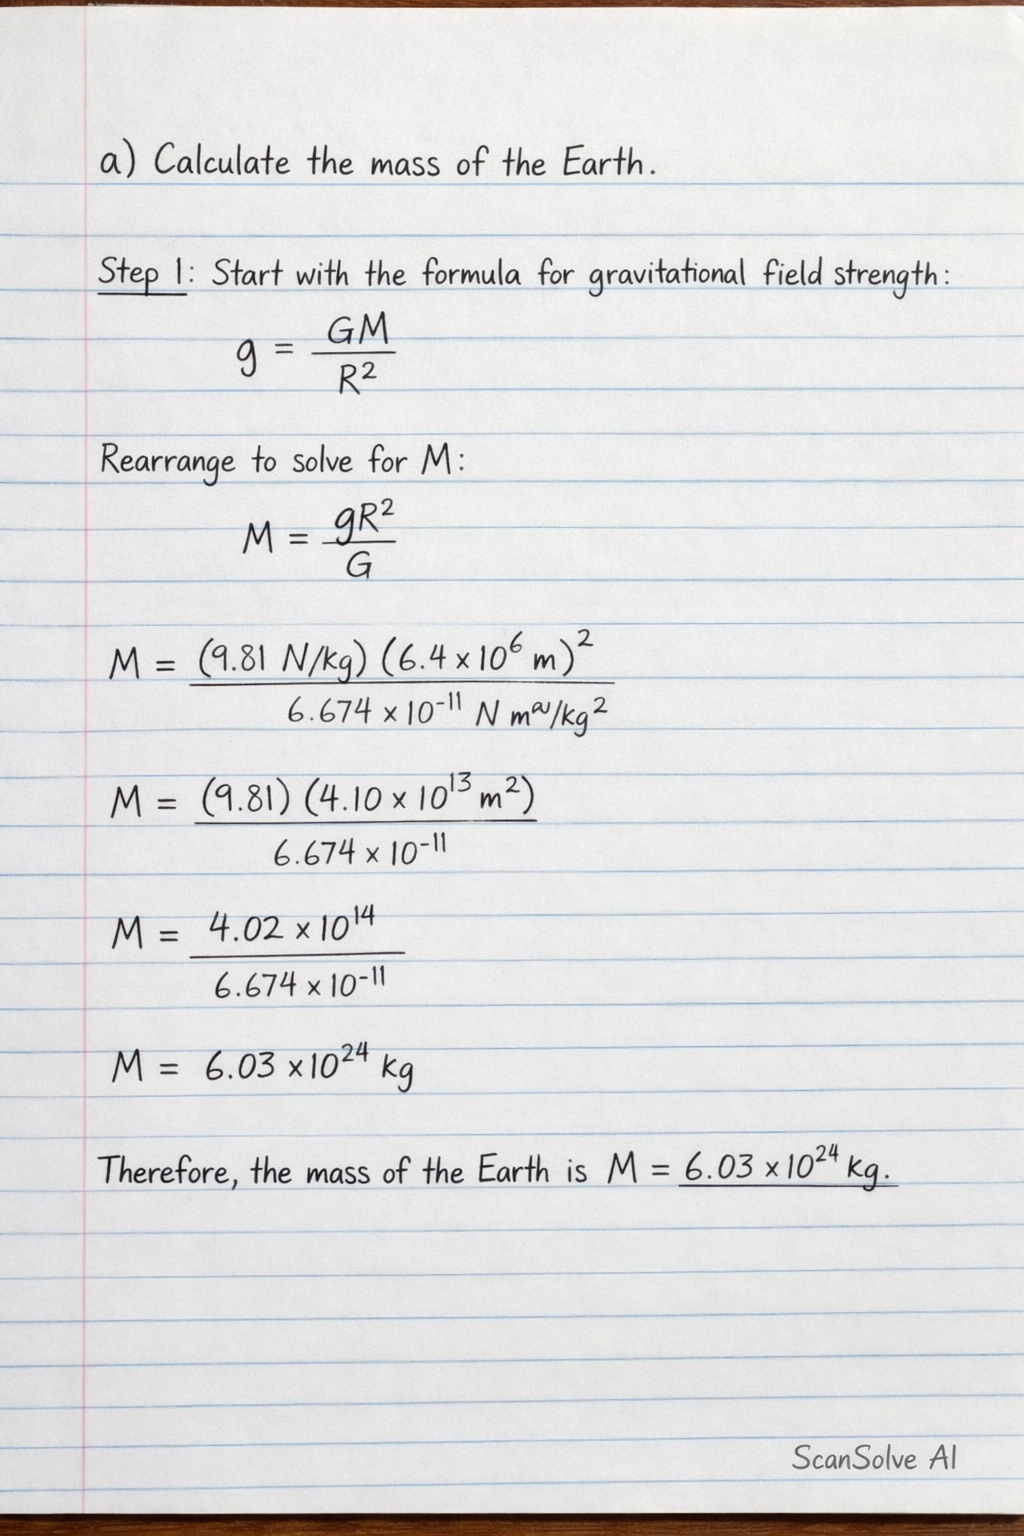 a) Calculate the mass of the Earth.
Step 1: Start with the formula for gravitational field strength:
g = GM / R²
Rearrange to solve for M:
M = gR² / G
M = (9.81 N/kg) (6.4 × 10⁶ m)² / 6.674 × 10⁻¹¹ N m /kg²
M = (9.81) (4.10 × 10¹³ m²) / 6.674 × 10⁻¹¹
M = 4.02 × 10¹⁴ / 6.674 × 10⁻¹¹
M = 6.03 × 10²⁴ kg
Therefore, the mass of the Earth is M = 6.03 × 10²⁴ kg.
ScanSolve AI